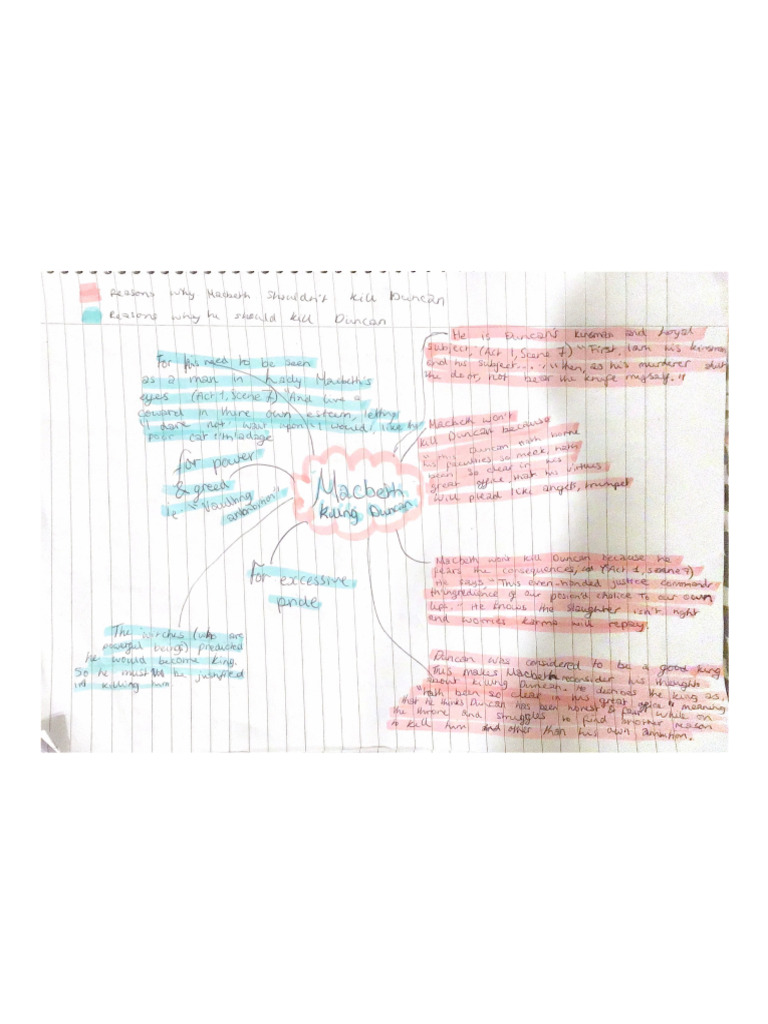 Reasons why Macbeth shouldn't kill Duncan
Reasons why he should kill Duncan
For his need to be seen
as a man in lady Macbeth's
eyes (Act 1, Scene 7) "And live a
coward in thine own esteem, letting
'I dare not' wait upon 'I would', like th'
poor cat i'th'adage
for power
& greed
"Vaulting
ambition"
For excessive
pride
The witches (who are
powerful beings) predicted
he would become king.
So he must be justified
in killing him.
Macbeth
killing Duncan
He is Duncan's kinsman and loyal
subject, (Act 1, Scene 7) "First, I am his kinsman
and his subject...", "then, as his murderer shut
the door, not bear the knife myself."
Macbeth won't
kill Duncan because
"this Duncan hath borne
his faculties so meek, hath
been so clear in his
great office, that his virtues
will plead like angels, trumpet
Macbeth won't kill Duncan because he
fears the consequences, (Act 1, scene 7)
He says "This even-handed justice commends
th'ingredience of our poison'd chalice To our own
lips." He knows the slaughter isn't right
and worries karma will repay.
Duncan was considered to be a good king
This makes Macbeth reconsider his thoughts
about killing Duncan. He describes the king as,
"hath been so clear in his great office" meaning
that he thinks Duncan has been honest & while on
the throne and struggles to find another reason
to kill him other than his own ambition.